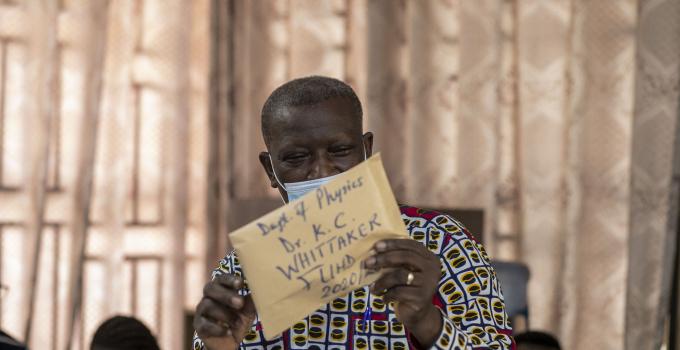 Dept. of Physics
Dr. K. C.
WHITTAKER
2020/